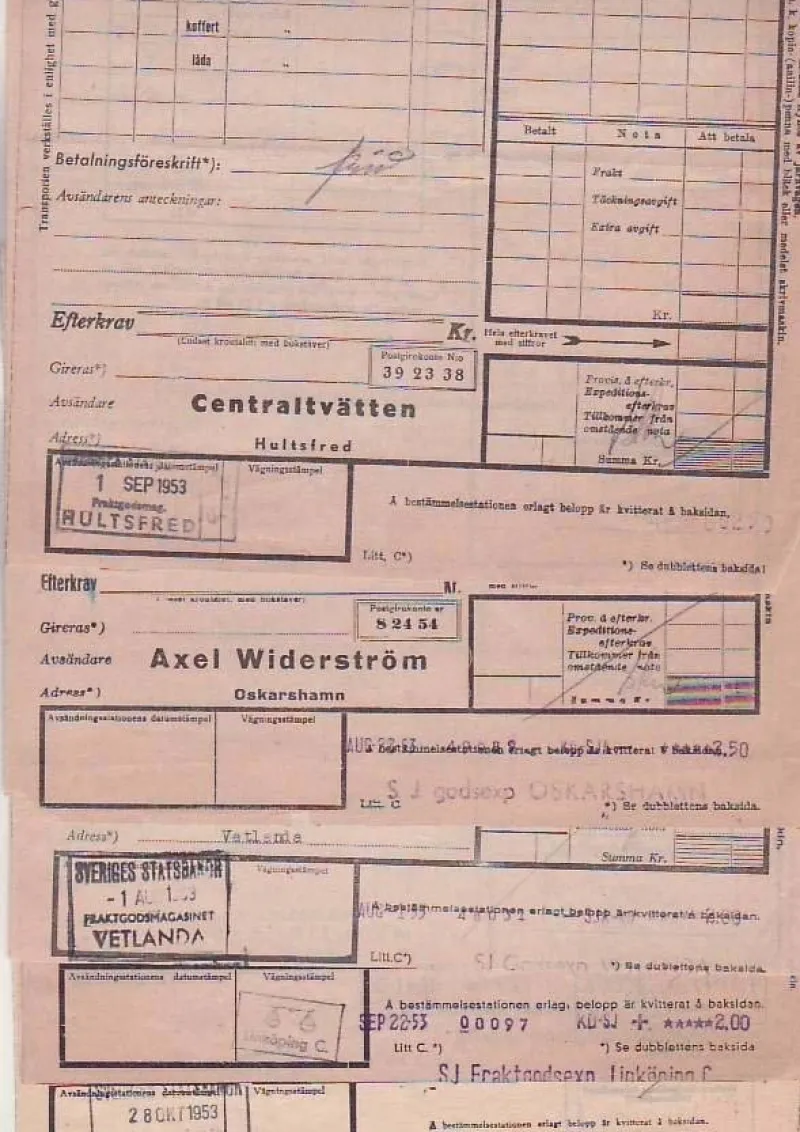 Transporten verkställes i enlighet med
koffert "
låda "
Betalt Nota Att betala
Betalningsföreskrift*):
Frakt
Avsändarens anteckningar:
Täckningsavgift
Extra avgift
Kr.
Efterkrav Kr.
Hela efterkravet
med siffror
(Endast krontalet med bokstäver)
Gireras*)
Postgirokonto N:o
39 23 38
Provis. å efterkr.
Expeditions-
efterkrav
Tillkommer från
omstående nota
Summa Kr.
Avsändare Centraltvätten
Adress*) Hultsfred
Avsändningsstationens datumstämpel Vägningsstämpel
1 SEP 1953
Fraktgodsmag.
HULTSFRED
Å bestämmelsestationen erlagt belopp är kvitterat å baksidan.
Litt. C*)
*) Se dubblettens baksida!
k. kopie-(anilin-)penna med bläck eller medelst skrivmaskin.
Efterkrav Kr.
Gireras*)
Postgirokonto nr
8 24 54
Prov. å efterkr.
Expeditions-
efterkrav
Tillkommer från
omstående nota
Summa Kr.
Avsändare Axel Widerström
Adress*) Oskarshamn
Avsändningsstationens datumstämpel Vägningsstämpel
AUG 22-53
Å bestämmelsestationen erlagt belopp är kvitterat å baksidan.
2,50
SJ godsexp OSKARSHAMN
Litt. C
*) Se dubblettens baksida.
Adress*) Vetlanda
Summa Kr.
SVERIGES STATSBANOR
FRAKTGODSMAGASINET
VETLANDA
Vägningsstämpel
Å bestämmelsestationen erlagt belopp är kvitterat å baksidan.
Litt.C*)
*) Se dubblettens baksida.
Avsändningsstationens datumstämpel Vägningsstämpel
Linköping C.
Å bestämmelsestationen erlag. belopp är kvitterat å baksidan.
SEP 22-53 00097 KD-SJ *****2,00
Litt C. *)
*) Se dubblettens baksida
SJ Fraktgodsexp Linköping C
Avsändningsstationens datumstämpel Vägningsstämpel
28 OKT 1953
Å bestämmelsestationen erlagt belopp är kvitterat å baksidan.